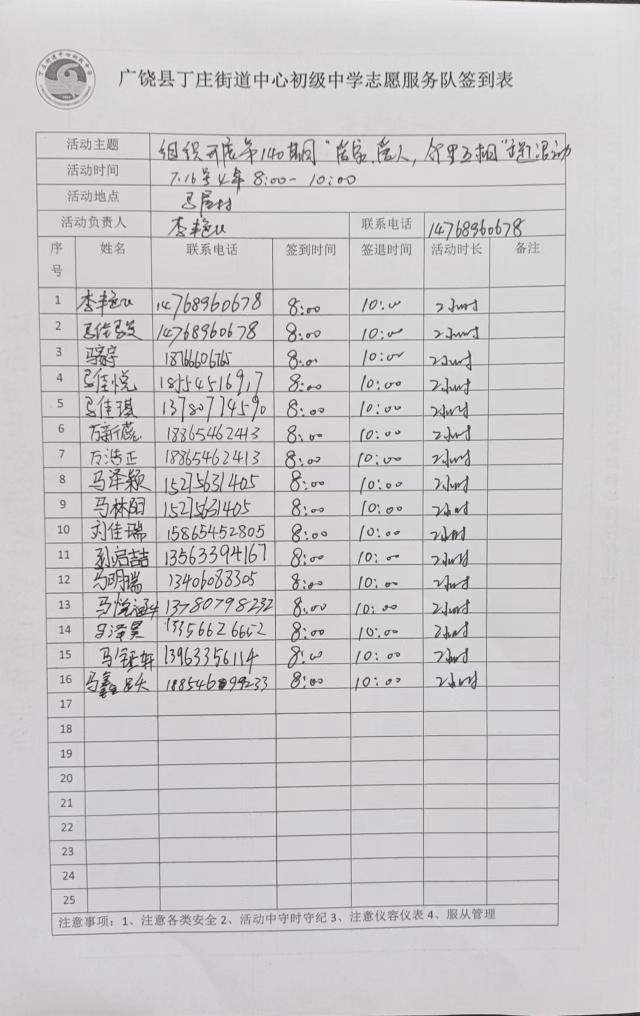 广饶县丁庄街道中心初级中学志愿服务队签到表
活动主题 组织开展第140期 人,邻里互相 活动
活动时间 7.16号 8:00-10:00
活动地点 马屋村
活动负责人 李艳 联系电话 14768960678
序号 姓名 联系电话 签到时间 签退时间 活动时长 备注
1 李艳 14768960678 8:00 10:00 2小时
2 马佳 14768960678 8:00 10:00 2小时
3 18766606765 8:00 10:00 2小时
4 马佳悦 8:00 10:00 2小时
5 马佳琪 13780774590 8:00 10:00 2小时
6 万新蕊 18865462413 8:00 10:00 2小时
7 万浩正 18865462413 8:00 10:00 2小时
8 马泽颖 15275631405 8:00 10:00 2小时
9 马林 15275631405 8:00 10:00 2小时
10 刘佳瑞 15865452805 8:00 10:00 2小时
11 孙启喆 13563394167 8:00 10:00 2小时
12 马明瑞 13406088305 8:00 10:00 2小时
13 马悦涵 13780798232 8:00 10:00 2小时
14 马泽昊 13356626652 8:00 10:00 2小时
15 马 轩 13963356114 8:00 10:00 2小时
16 马鑫跃 8:00 10:00 2小时
17
18
19
20
21
22
23
24
25
注意事项:1、注意各类安全 2、活动中守时守纪 3、注意仪容仪表 4、服从管理